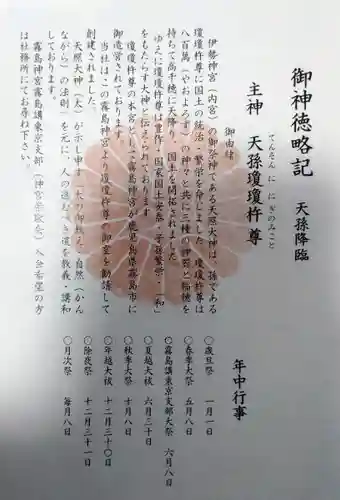 御神徳略記　天孫降臨
主神　天孫瓊瓊杵尊
てんそんににぎのみこと
御由緒
伊勢神宮（内宮）の御祭神である天照大神は、孫である
瓊瓊杵尊に国土の統治・繁栄を命じました。瓊瓊杵尊は
八百萬（やおよろず）の神々と共に三種の神器と稲穂を
持ちて高千穂に天降り、国土を開拓されました。
ゆえに瓊瓊杵尊は豊作・国家国土安泰・子孫繁栄・「和」
をもたらす大神と伝えられております。
瓊瓊杵尊の本宮として霧島神宮が鹿児島県霧島市に
御造営されております。
当社は、この霧島神宮より瓊瓊杵尊の御霊を勧請して
創建されました。
天照大神（太）が示し申す「大いの御教え、自然（かん
ながら）の法則」を元に、人の進むべき道を教義・講和
しております。
霧島神宮霧島講東京支部（神宮崇敬会）入会希望の方
は社務所にてお尋ね下さい。
年中行事
〇歳旦祭　一月一日
〇春季大祭　五月八日
〇霧島講東京支部大祭　六月八日
〇夏越大祓　六月三十日
〇秋季大祭　十月八日
〇年越大祓　十二月三十日
〇除夜祭　十二月三十一日
〇月次祭　毎月八日